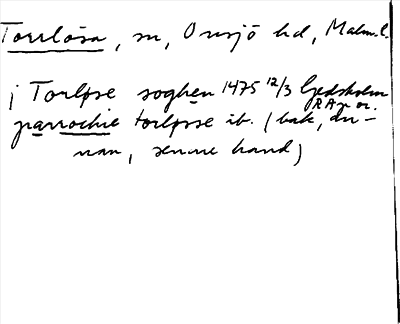 Torrlösa, sn, Onsjö hd, Malm.l.
j Torløse soghen 1475 12/3 Gedsholm
RAp or.
parrochie torløsse ib. (bak, an-
nan, senare hand)